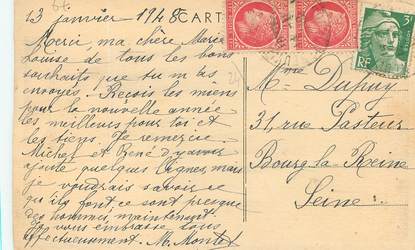 13 janvier 1948
CARTE
Merci, ma chère Marie
Louise de tous les bons
souhaits que tu m'as
envoyés. Reçois les miens
pour la nouvelle année
les meilleurs pour toi et
les tiens. Je remercie
Michel et René d'avoir
ajouté quelques lignes, mais
je voudrais savoir ce
qu'ils font ce sont presque
des hommes, maintenant
Je vous embrasse tous
affectueusement. M. Montet
3F
RF
Mme Dupuy
31, rue Pasteur
Bourg la Reine
Seine